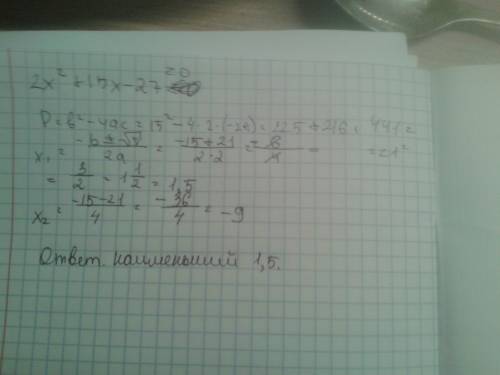 2x² + 15x - 27 = 0
D = b² - 4ac = 15² - 4 · 2 · (-27) = 225 + 216 = 441 =
= 21²
x₁ = (-b ± √D)/2a = (-15+21)/(2·2) = 6/4 =
= 3/2 = 1 1/2 = 1,5
x₂ = (-15-21)/4 = -36/4 = -9
Ответ. наименьший 1,5.